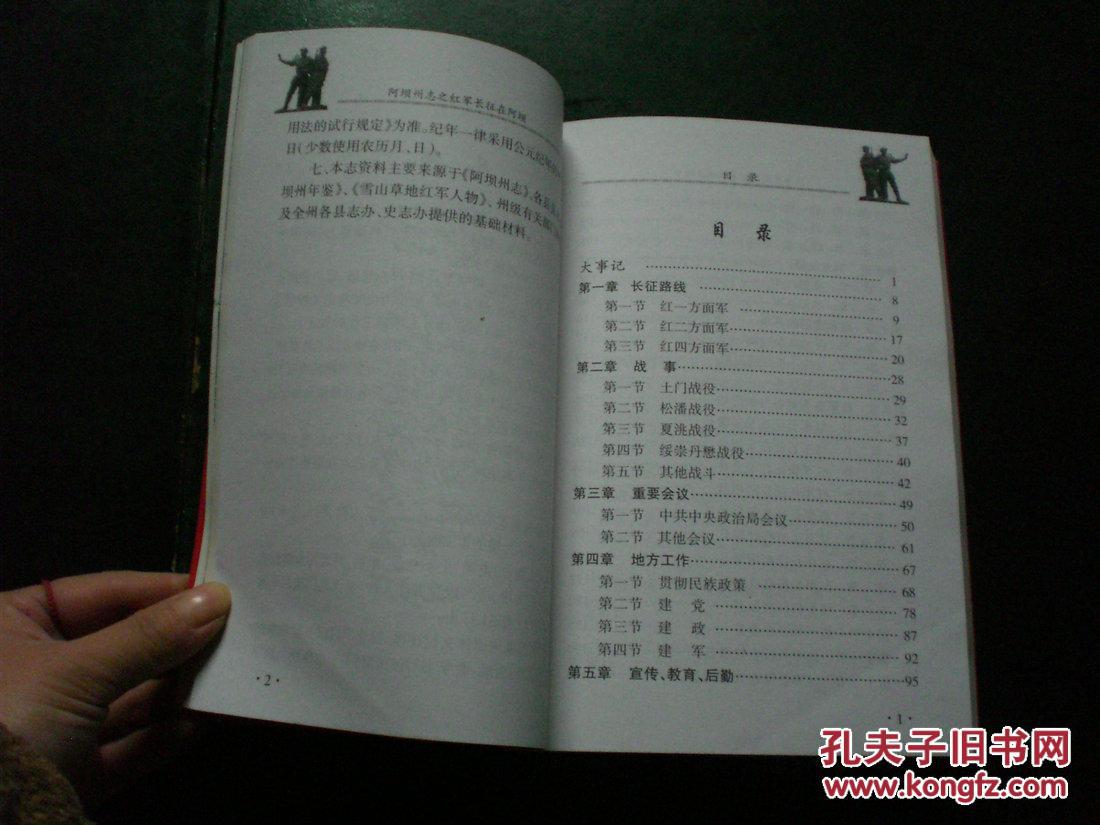 阿坝州志之红军长征在阿坝
用法的试行规定》为准。纪年一律采用公元纪
日(少数使用农历月、日)。
七、本志资料主要来源于《阿坝州志》、各县
坝州年鉴》、《雪山草地红军人物》、州级有关部
及全州各县志办、史志办提供的基础材料。
·2·
目 录
目 录
大事记 …………………… 1
第一章 长征路线 …………………… 8
第一节 红一方面军 …………………… 9
第二节 红二方面军 …………………… 17
第三节 红四方面军 …………………… 20
第二章 战 事 …………………… 28
第一节 土门战役 …………………… 29
第二节 松潘战役 …………………… 32
第三节 夏洮战役 …………………… 37
第四节 绥崇丹懋战役 …………………… 40
第五节 其他战斗 …………………… 42
第三章 重要会议 …………………… 49
第一节 中共中央政治局会议 …………………… 50
第二节 其他会议 …………………… 61
第四章 地方工作 …………………… 67
第一节 贯彻民族政策 …………………… 68
第二节 建 党 …………………… 78
第三节 建 政 …………………… 87
第四节 建 军 …………………… 92
第五章 宣传、教育、后勤 …………………… 95
·1·
孔夫子旧书网
www.kongfz.com